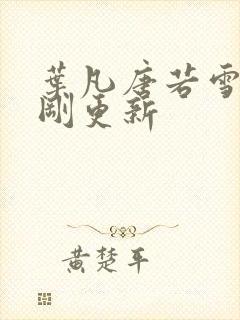 葉凡唐若雪
剛更新
黃楚平